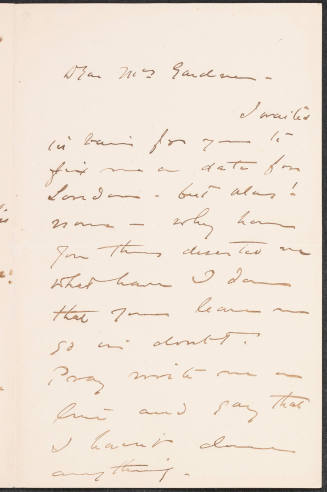 Dear Mrs Gardner -
I waited
in vain for you to
fix me a date for
London - but alas!
none - why have
you thus deserted me
what have I done
that you leave me
so in doubt?
Pray write me a
line and say that
I havn't done
anything.